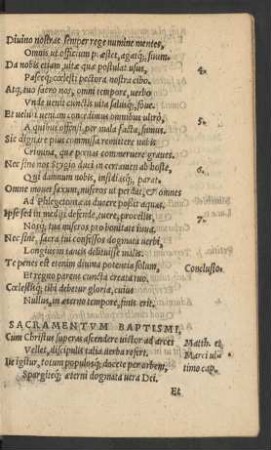 Diuino nostras semper rege numine mentes,
Omnis ut officium præstet, agatq; suum.
Da nobis etiam, uitæ quæ postulat usus, 4.
Pasceq; cœlesti pectora nostra cibo.
Atq; tuo sacro nos, omni tempore, uerbo
Vnde uenit cunctis uita salusq́;, foue.
Et ueluti ueniam concedimus omnibus ultrò, 5.
A quibus offensi, per mala facta, sumus.
Sic dignare pius commissa remittere nobis
Crimina, quæ pœnas commeruere graues.
Nec sine nos Stygio duci in certamen ab hoste, 6.
Qui damnum nobis, insidiasq́;, parat.
Omne mouet saxum, miseros ut perdat, & omnes
Ad Phlegetontæas ducere possit aquas.
Ipse sed in medijs defende, tuere, procellis, 7.
Nosq́; tuo miseros pro bonitate iuua.
Nec sine, sacra tui confessos dogmata uerbi,
Longius in tantis delituisse malis.
Te penes est etenim diuina potentia solum, Conclusio.
Et regno parent cuncta creata tuo.
Cœlestisq́; tibi debetur gloria, cuius
Nullus, in æterno tempore, finis erit.
SACRAMENTVM BAPTISMI,
Cum Christus superas ascendere uictor ad arces Matth. et
Vellet, discipulis talia uerba refert. Marci ul=
Ite igitur, totum populosq́; docete per orbem, timo cap.
Spargiteq́; æterni dogmata uera Dei.
Et